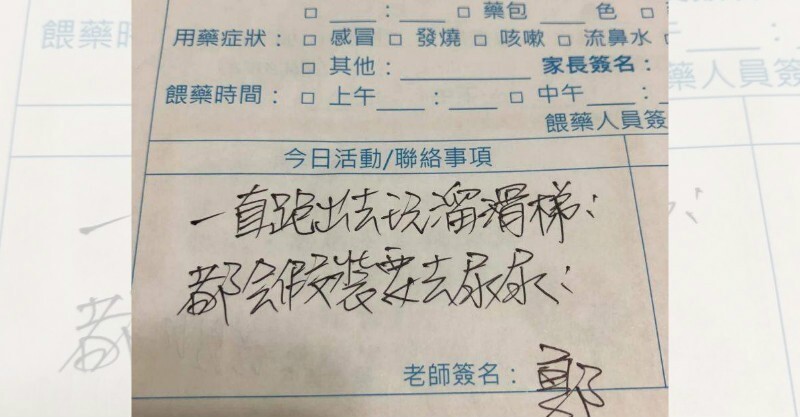 □ ___:___ □ 藥包 ___ 色 □
用藥症狀：□ 感冒 □ 發燒 □ 咳嗽 □ 流鼻水
□ 其他：________ 家長簽名：
餵藥時間：□ 上午 ___:___ □ 中午 ___:
餵藥人員簽
今日活動/聯絡事項
一直跑出去玩溜滑梯：
都会假裝要去尿尿：
老師簽名：鄭